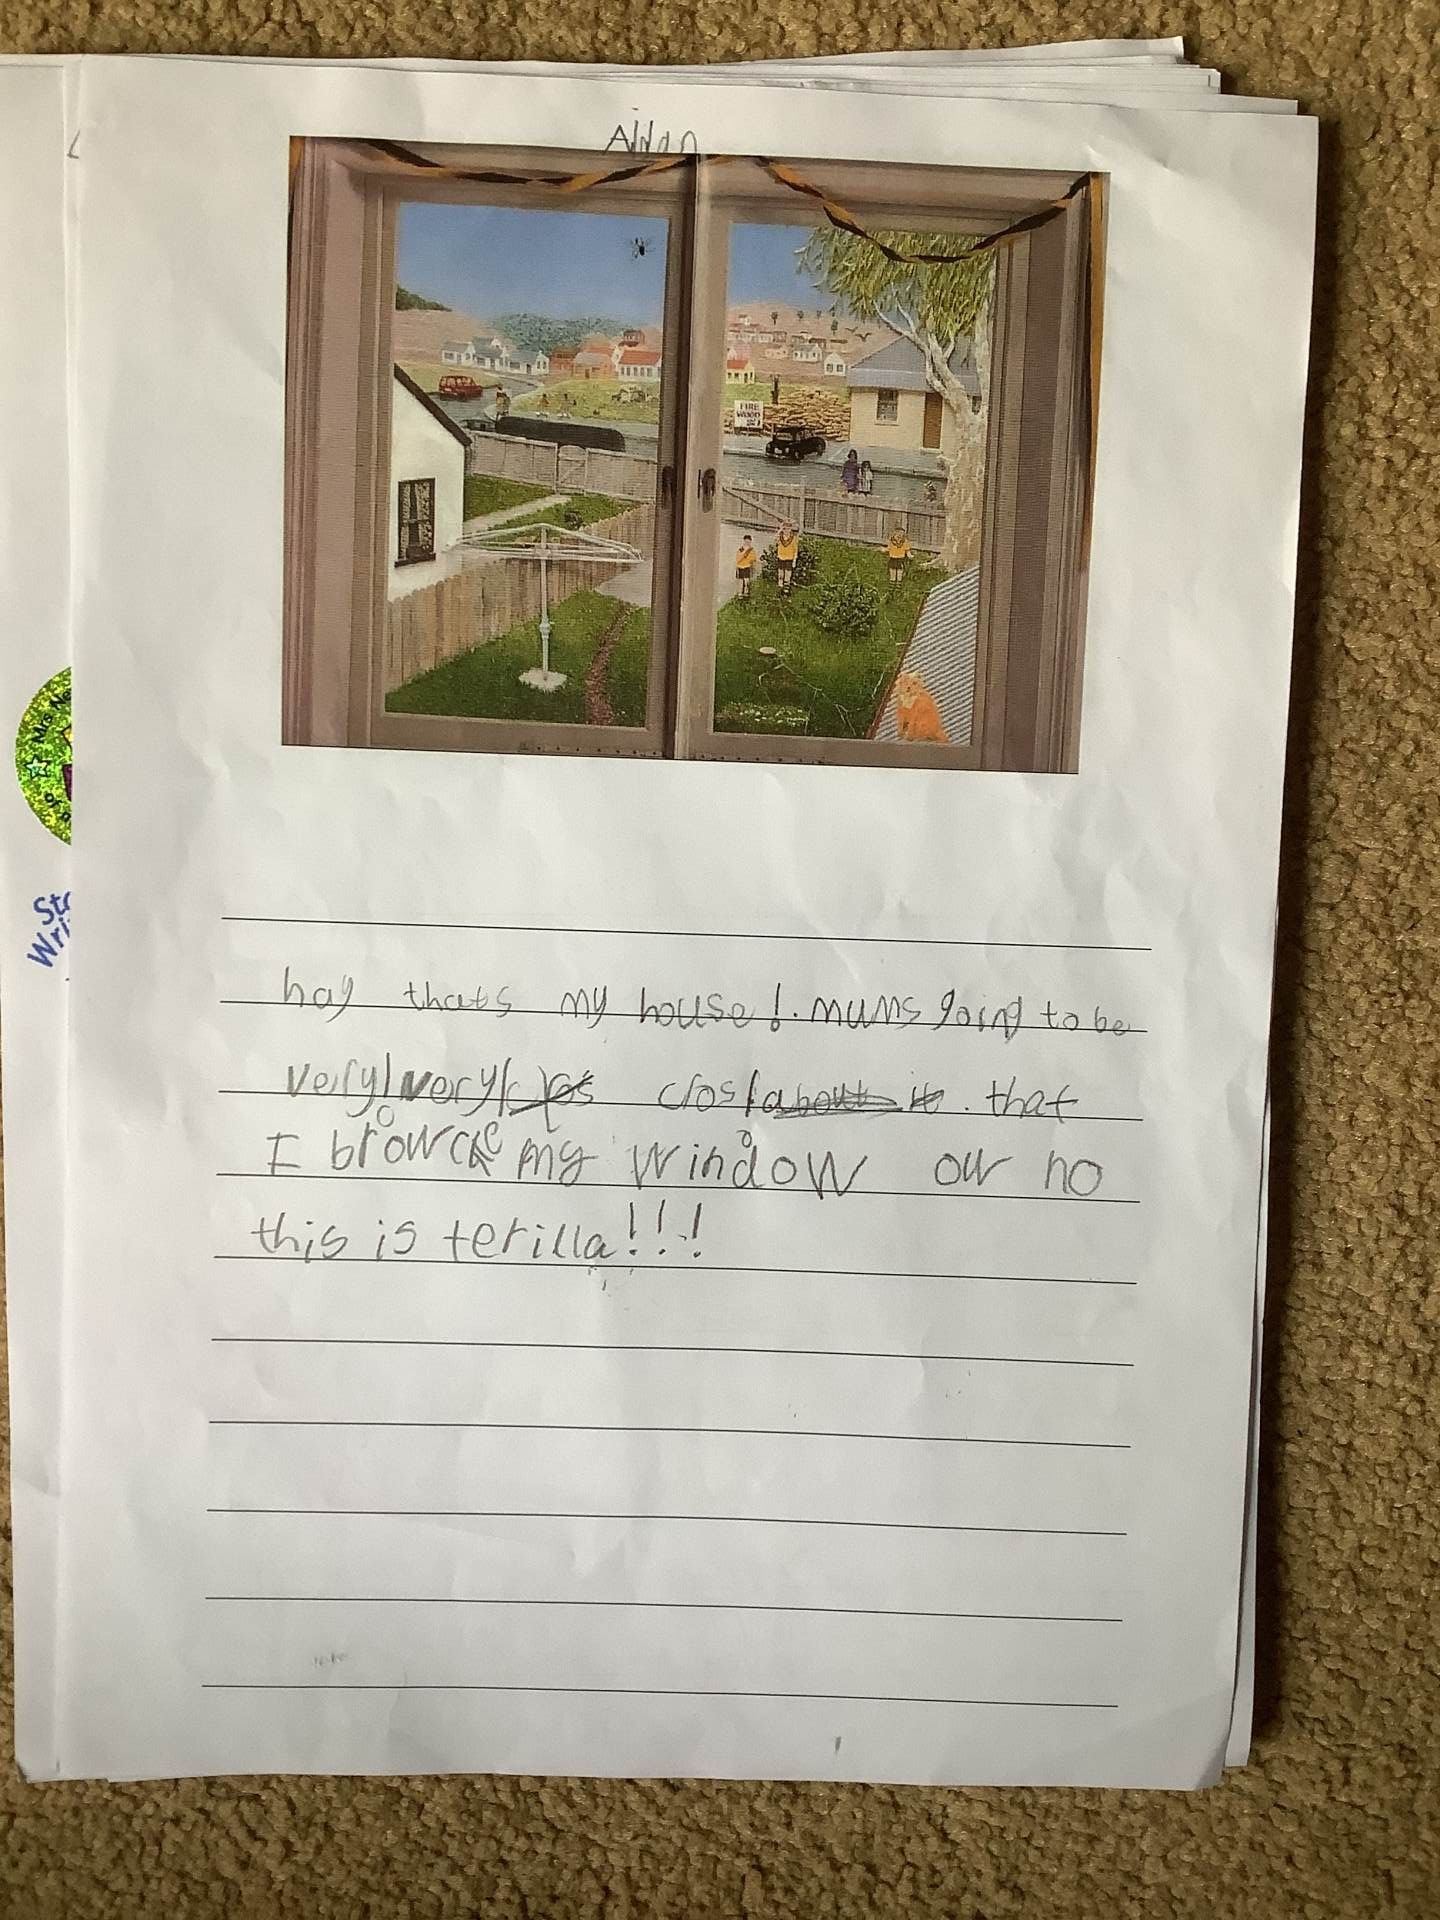 Aidan
FIRE
WOOD
hay thats my house!. mums going to be
very very clos about it. that
I browcke my window ow no
this is terilla!!!
St
Wri